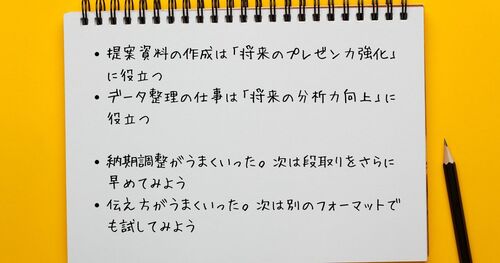 • 提案資料の作成は「将来のプレゼン力強化」
に役立つ
• データ整理の仕事は「将来の分析力向上」に
役立つ
• 納期調整がうまくいった。次は段取りをさらに
早めてみよう
• 伝え方がうまくいった。次は別のフォーマットで
も試してみよう